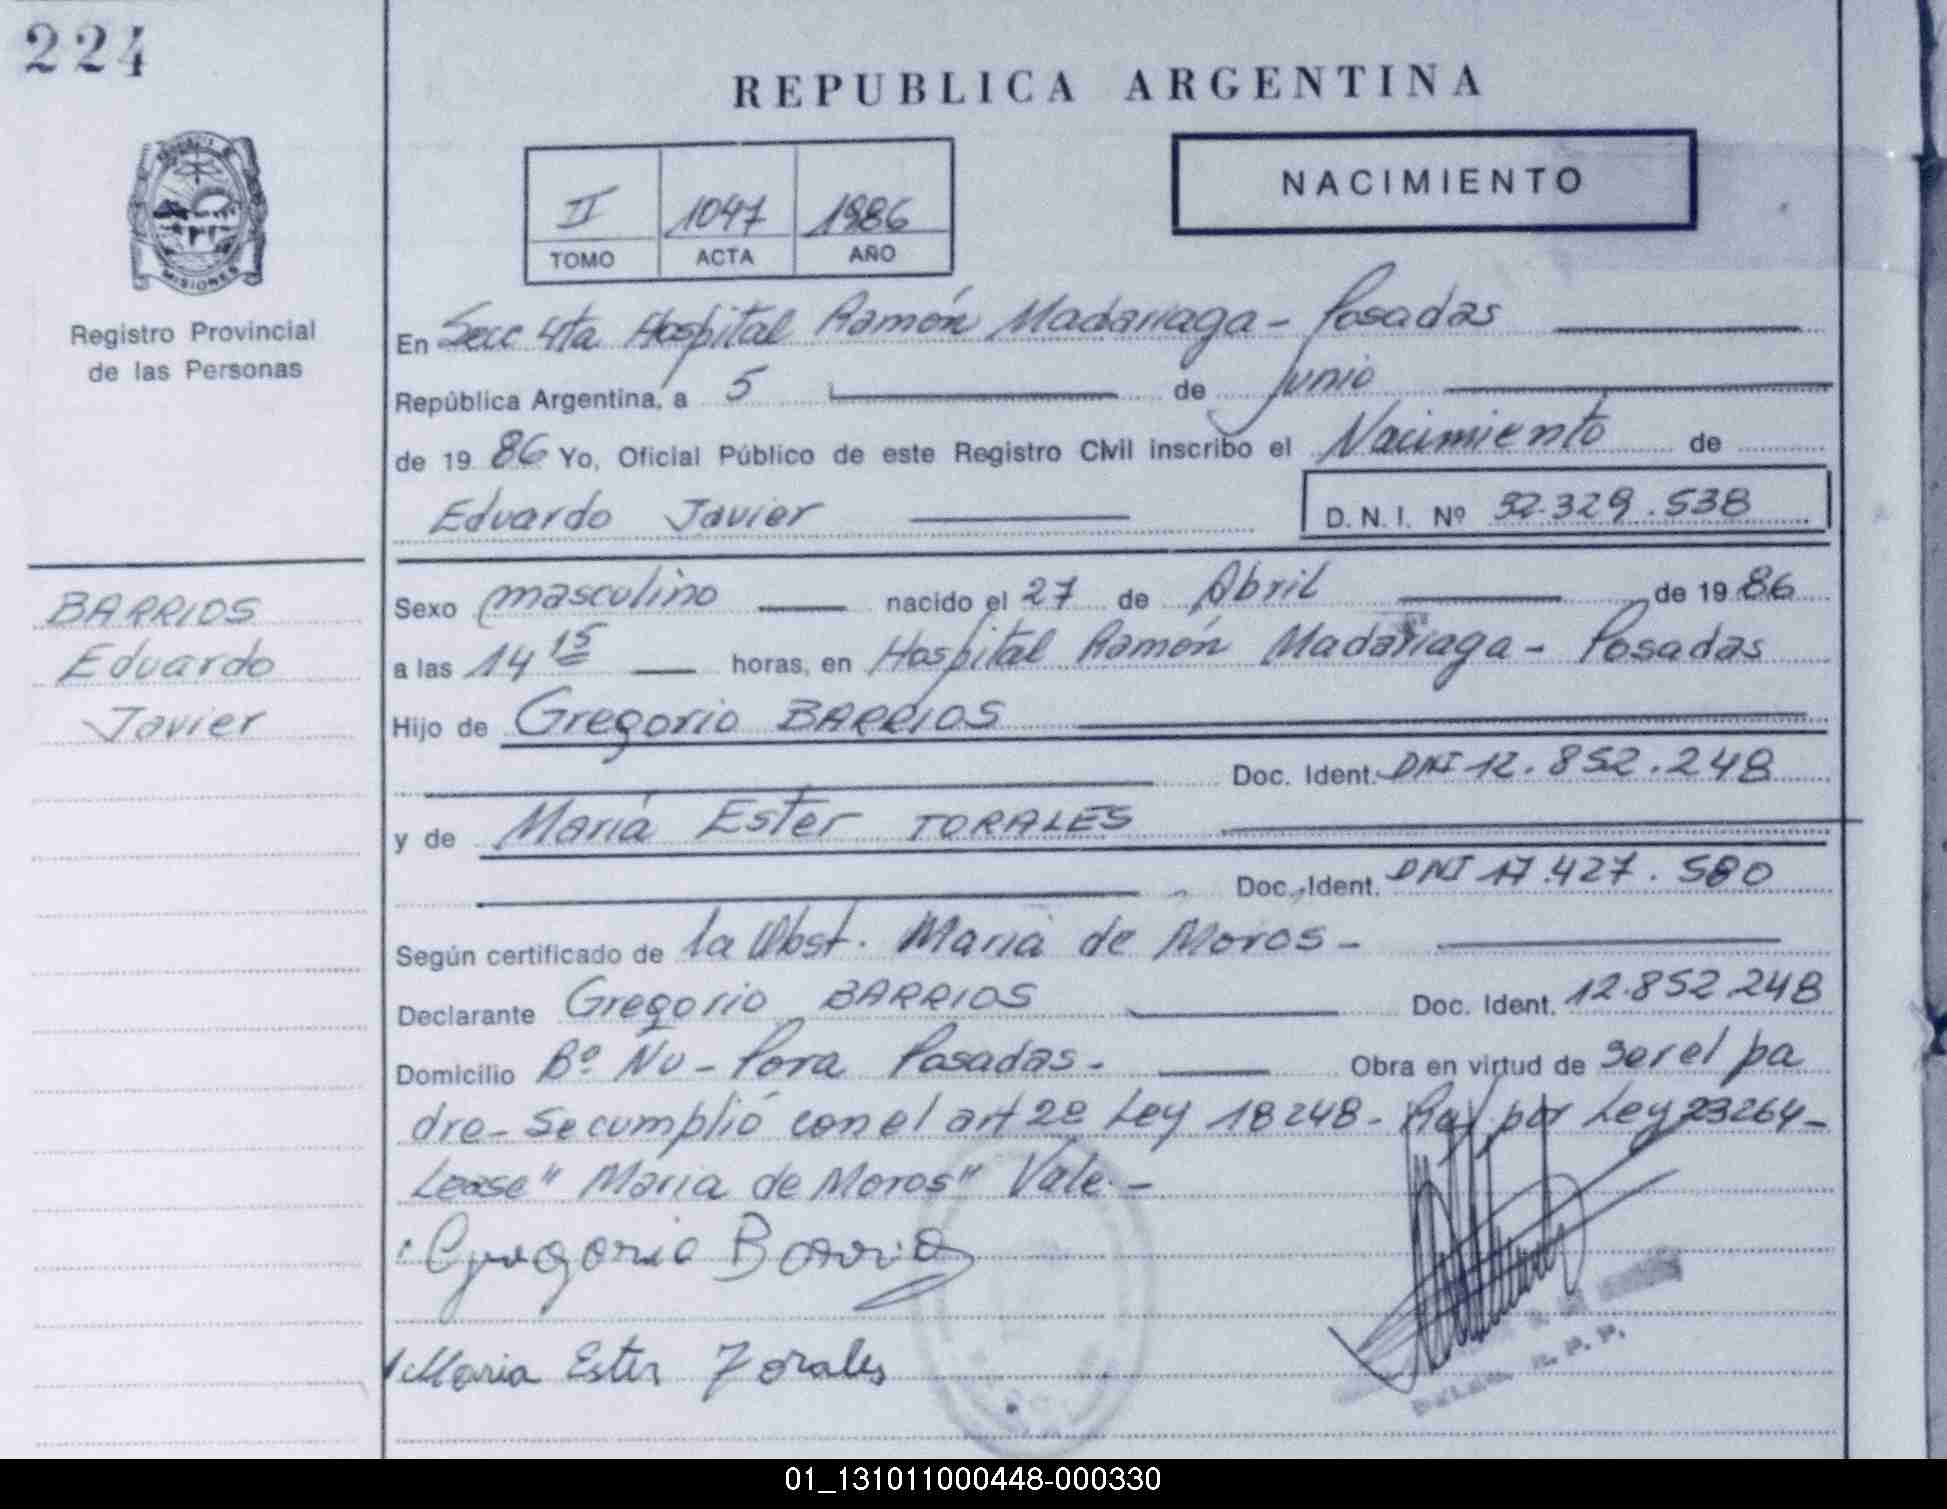 224
REPUBLICA ARGENTINA
II 1047 1986
TOMO ACTA AÑO
NACIMIENTO
MISIONES
Registro Provincial
de las Personas
En Secc 4ta Hospital Ramón Madariaga - Posadas
República Argentina, a 5 de Junio
de 19 86 Yo, Oficial Público de este Registro Civil inscribo el Nacimiento de
Eduardo Javier D.N.I. Nº 32.329.538
BARRIOS
Eduardo
Javier
Sexo masculino nacido el 27 de Abril de 19 86
a las 14 15 horas, en Hospital Ramón Madariaga - Posadas
Hijo de Gregorio BARRIOS
Doc. Ident. DNI 12.852.248
y de María Ester TORALES
Doc. Ident. DNI 17.427.580
Según certificado de la Obst. Maria de Moros -
Declarante Gregorio BARRIOS Doc. Ident. 12.852.248
Domicilio Bº Ñu - Pora Posadas. Obra en virtud de ser el pa
dre - Se cumplió con el art 2º Ley 18248 - por Ley 23264 -
Lease "Maria de Moros" Vale -
Gregorio Barrios
Maria Ester Torales
01_131011000448-000330